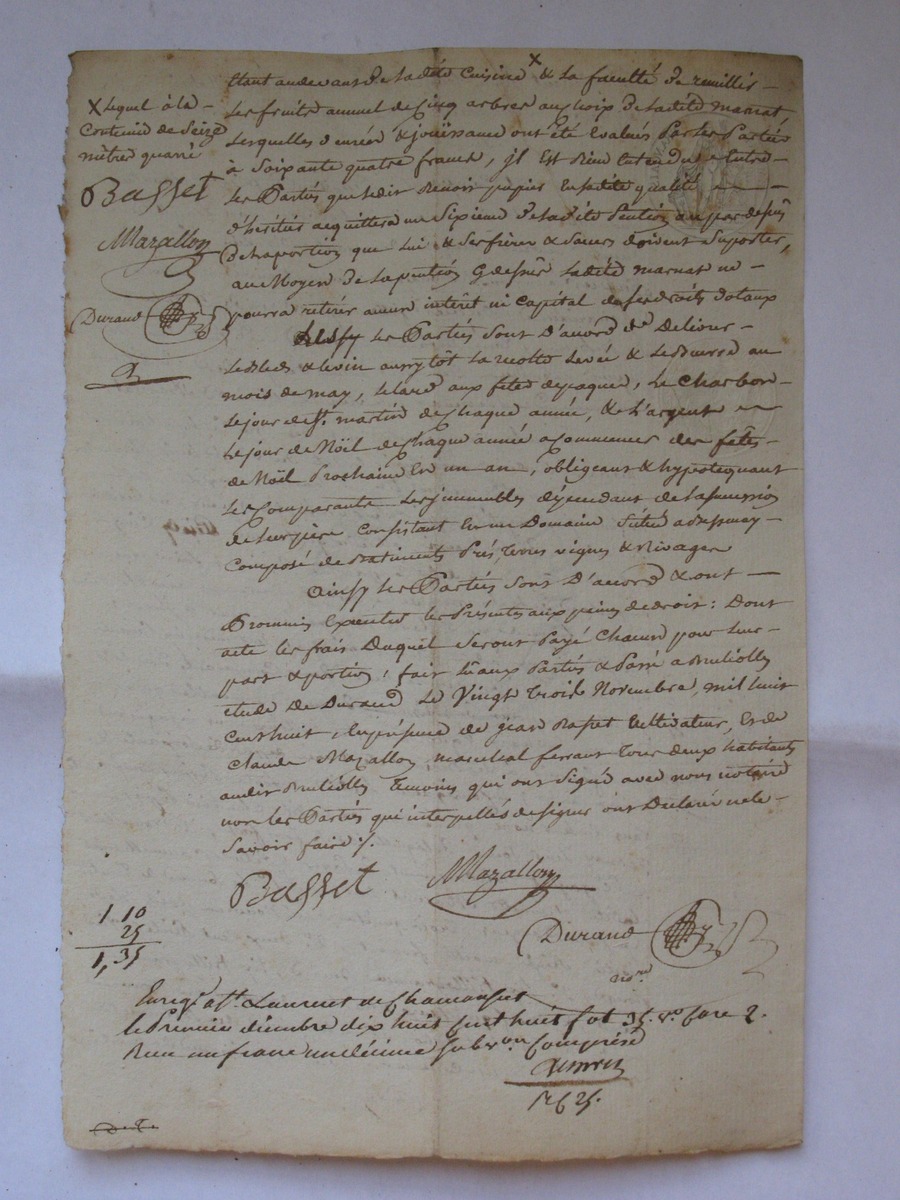 X lequel à la
Contenue de Seize
mètres quarré
Basset
MMazallon
Durand
Etant audevant de ladite Cuisine X & la faculté de
les fruits annuel de Cinq arbres au choix de ladite marnat
Lesquelles denrées & joüissance ont été Evalués Par les Parties
à Soixante quatre francs, jl Est Bien Entendu Entre
les Parties que ledit Benoit papier En sadite qualité
d'héritier acquittera un Sixieme de ladite Pention au par dessus
De la portion que Lui & Ses freres & Sœurs doivent Suporter,
au Moyen de la pention Cy dessus ladite marnat ne
pourra retirer aucun intérêt ni Capital de ses droits dotaux
les Parties Sont D'accord de Délivrer
Le Bled & le vin aussytôt la recolte Levée & le Beurre au
mois de may, le lard aux fetes de paque, Le Charbon
Le jour de St. martin de Chaque année, & L'argent
Le jour de Nöel de Chaque année a Commencer des fêtes
de Nöel Prochain En un an, obligeant & hypotequant
Les Comparants Les jmmeubles dépendant de la succession
de Leur père Consistant En un Domaine Situé a
Composé de Batiments Prés, Terres vignes & Rivages
Ainsy les Parties Sont D'accord & ont
Promis Executer les Présentes aux peines de droit : Dont
acte les frais Duquel Seront Payé Chacun pour leur
part & portion, fait Lû aux Parties & Passé a Brulliolles
etude de Durand Le Vingt Trois Novembre, mil huit
Cent huit, En présence de jean Basset Cultivateur, Et de
Claude Mazallon, marechal ferrant Tous deux habitants
audit Brulliolles Temoins qui ont Signé avec nous notaire
non les Parties qui interpellés de signer ont Déclaré ne le
Savoir faire /.
Basset
MMazallon
Durand
1 10
25
1, 35
Enregé a St. Laurent de Chamousset
le Premier décembre dix huit Cent huit fol 35. vo. Case 2.
Reçu un franc un décime Subvon Comprise
1f 25.